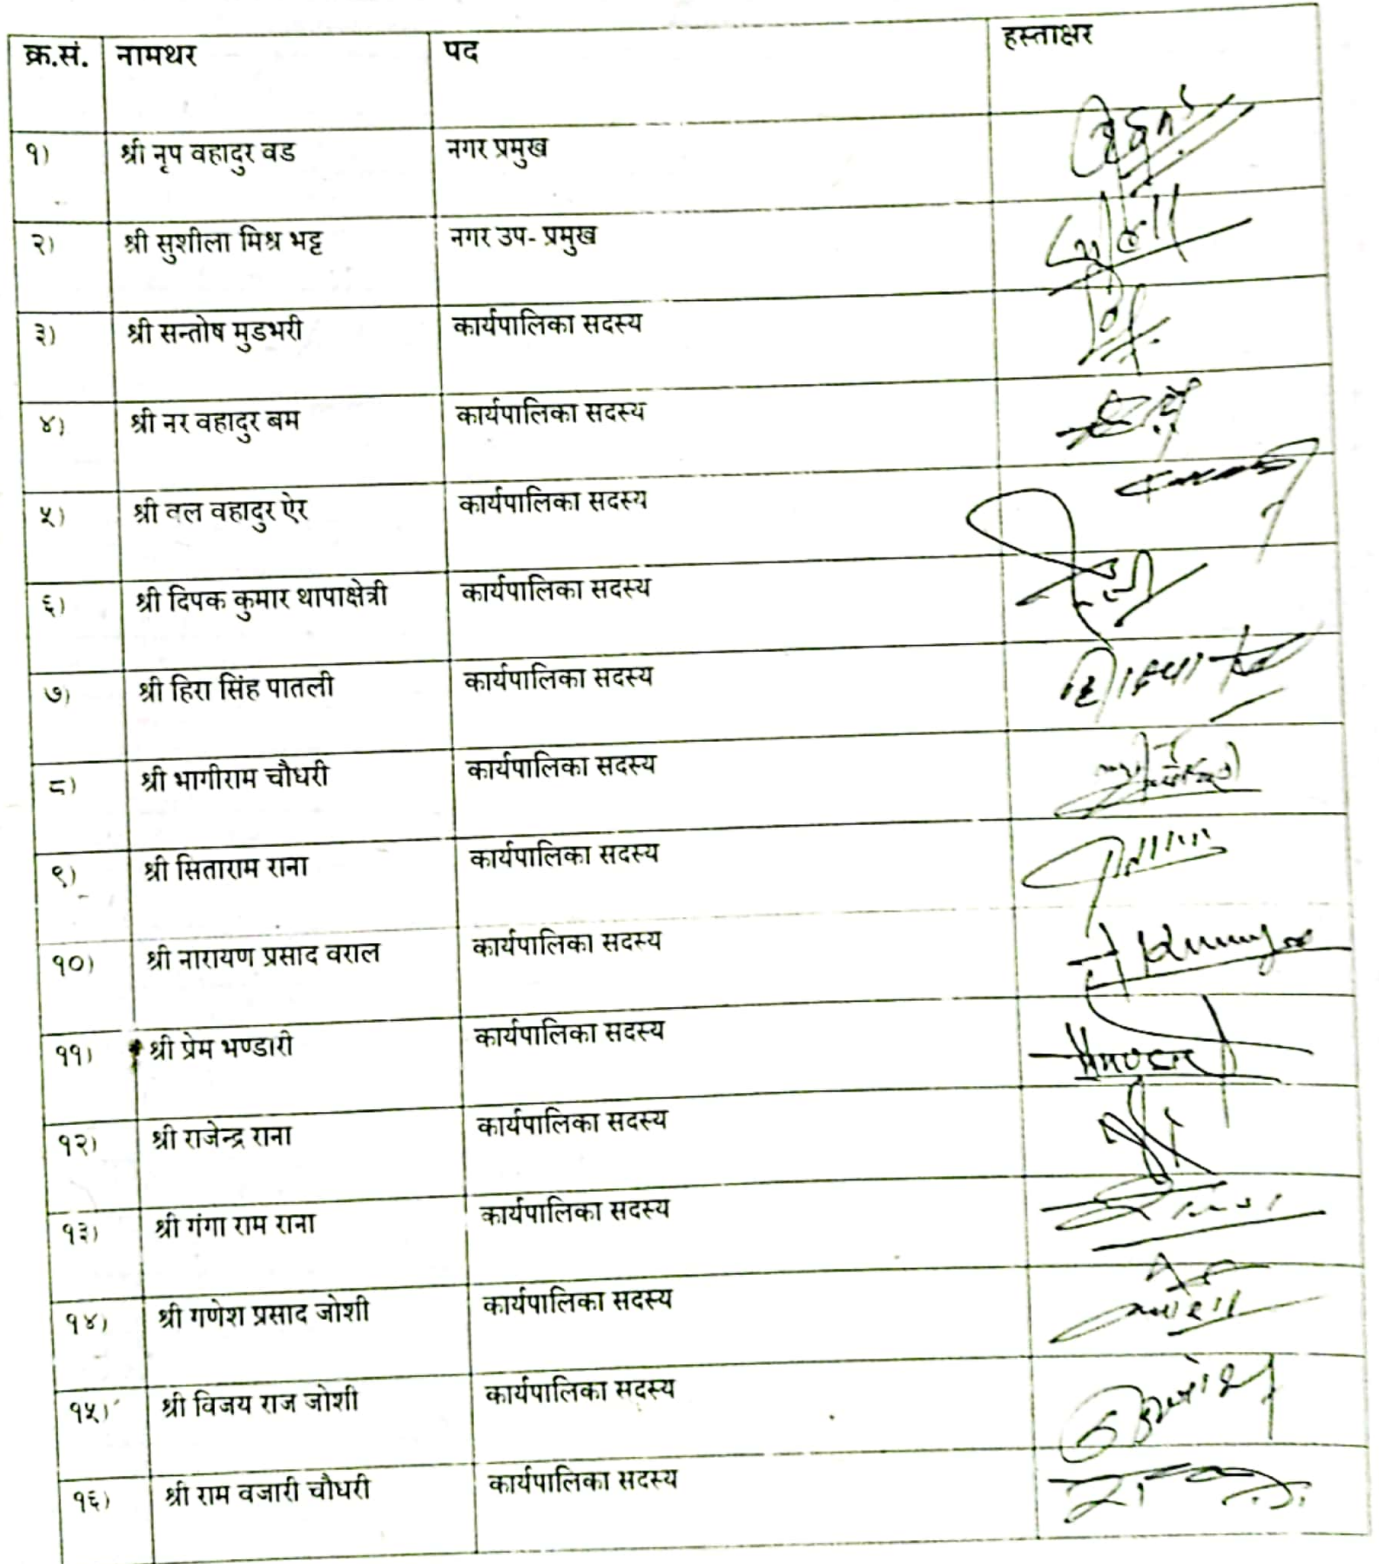 क्र.सं. नामथर पद हस्ताक्षर
१) श्री नृप वहादुर वड नगर प्रमुख
२) श्री सुशीला मिश्र भट्ट नगर उप- प्रमुख
३) श्री सन्तोष मुडभरी कार्यपालिका सदस्य
४) श्री नर वहादुर बम कार्यपालिका सदस्य
५) श्री वल वहादुर ऐर कार्यपालिका सदस्य
६) श्री दिपक कुमार थापाक्षेत्री कार्यपालिका सदस्य
७) श्री हिरा सिंह पातली कार्यपालिका सदस्य
८) श्री भागीराम चौधरी कार्यपालिका सदस्य
९) श्री सिताराम राना कार्यपालिका सदस्य
१०) श्री नारायण प्रसाद वराल कार्यपालिका सदस्य
११) श्री प्रेम भण्डारी कार्यपालिका सदस्य
१२) श्री राजेन्द्र राना कार्यपालिका सदस्य
१३) श्री गंगा राम राना कार्यपालिका सदस्य
१४) श्री गणेश प्रसाद जोशी कार्यपालिका सदस्य
१५) श्री विजय राज जोशी कार्यपालिका सदस्य
१६) श्री राम वजारी चौधरी कार्यपालिका सदस्य